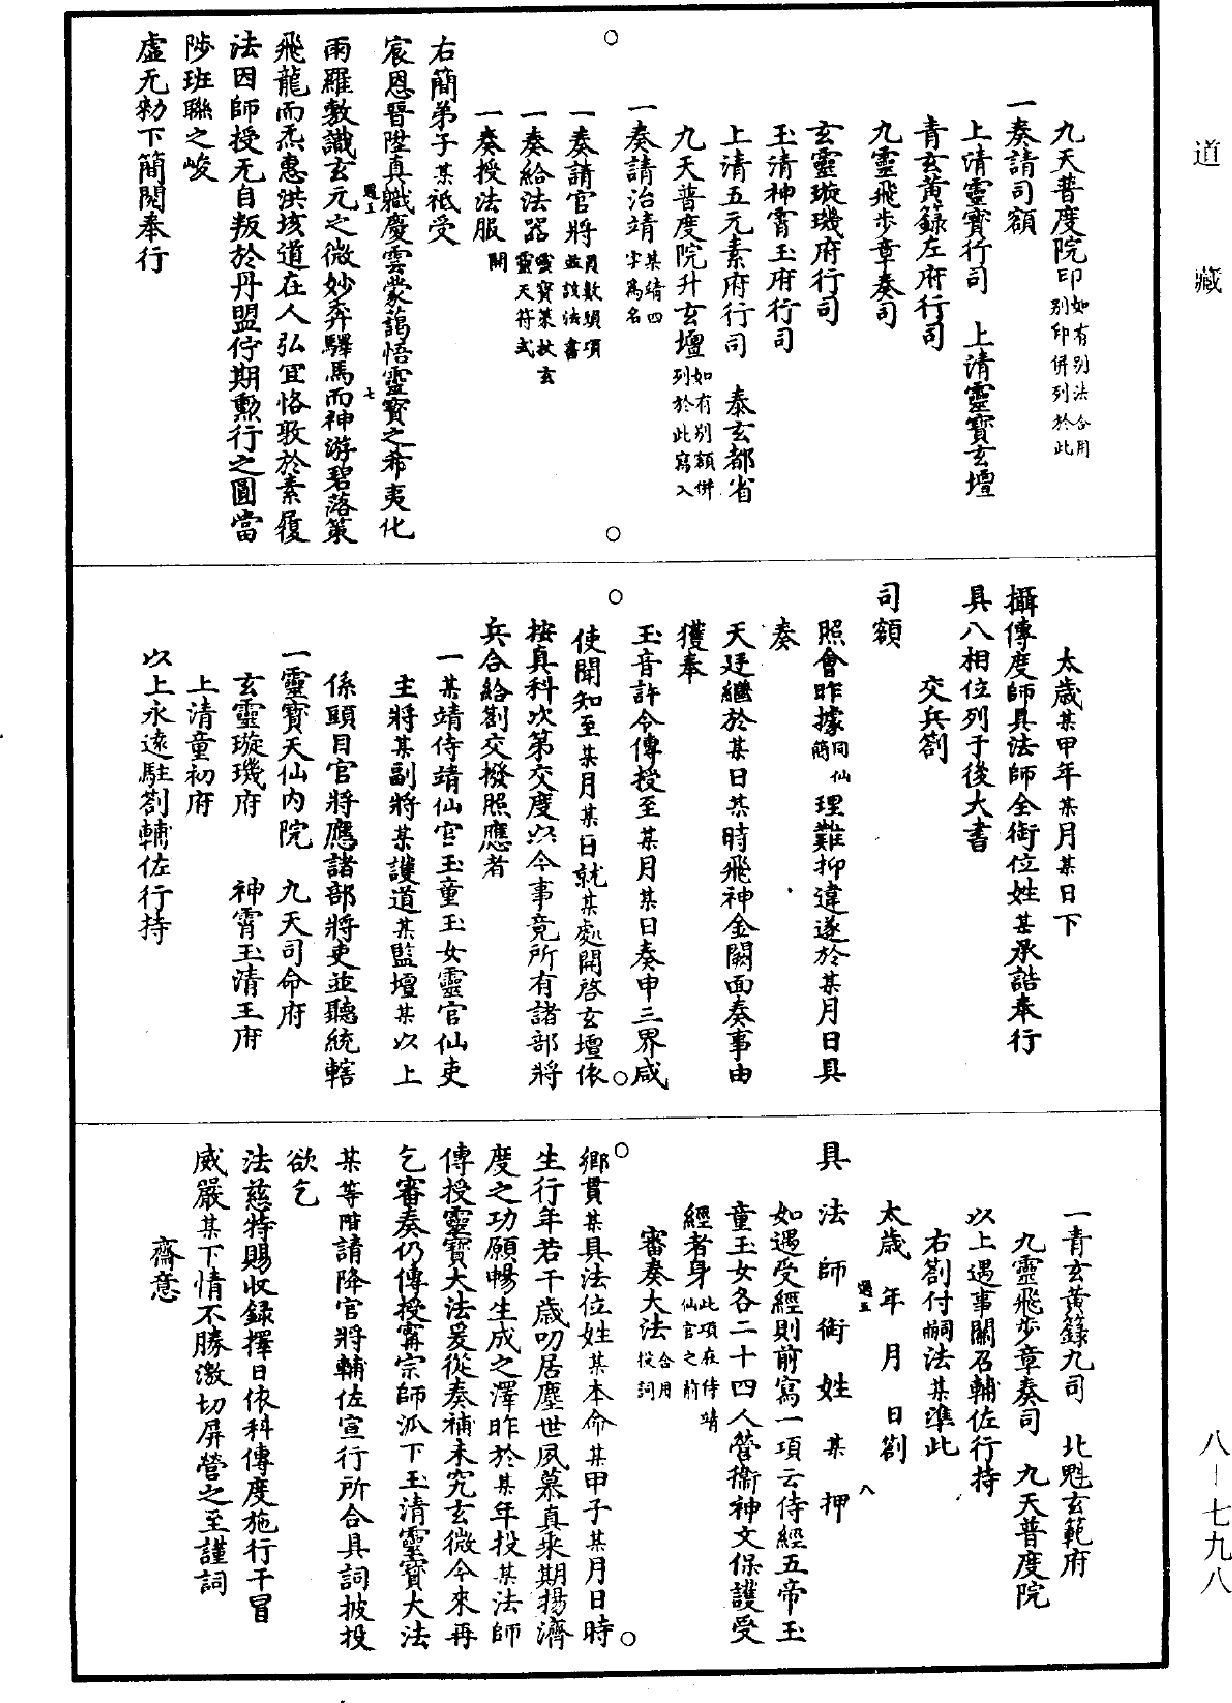 道藏
九天普度院印如有別法合用別印併列於此
一奏請司額
上清靈寶行司　上清靈寶玄壇
青玄黃籙左府行司
九靈飛步章奏司
玄靈璇璣府行司
玉清神霄玉府行司
上清五元素府行司　泰玄都省
九天普度院升玄壇如有別額併列於此寫入
一奏請治靖某靖四字爲名
一奏請官將員數頭項並該法書
一奏給法器靈寶策杖玄靈天符式
一奏授法服開
右簡弟子某祗受
宸恩晉陞真職慶雲蒙藹悟靈寶之希夷化
雨羅敷識玄元之微妙奔驛馬而神游碧落策
飛龍而炁惠洪垓道在人弘宜恪敦於素履
法因師授无自叛於丹盟佇期勲行之圓當
陟班聯之峻
虛无勑下簡閱奉行
太歲某甲年某月某日下
攝傳度師具法師全銜位姓某承誥奉行
具八相位列于後大書
交兵劄
司額
照會昨據同仙簡理難抑違遂於某月日具
奏
天廷繼於某日某時飛神金闕面奏事由
獲奉
玉音許令傳授至某月某日奏申三界咸
使聞知至某月某日就某處開啓玄壇依
按真科次第交度以今事竟所有諸部將
兵合給劄交撥照應者
一某靖侍靖仙官玉童玉女靈官仙吏
主將某副將某護道某監壇某以上
係頭目官將應諸部將吏並聽統轄
一靈寶天仙內院　九天司命府
玄靈璇璣府　神霄玉清王府
上清童初府
以上永遠駐劄輔佐行持
一青玄黃籙九司　北魁玄範府
九靈飛步章奏司　九天普度院
以上遇事關召輔佐行持
右劄付嗣法某準此
太歲　年　月　日劄
具法師銜姓某押
如遇受經則前寫一項云侍經五帝玉
童玉女各二十四人營衞神文保護受
經者身此項在侍靖仙官之前
審奏大法合用投詞
鄉貫某具法位姓某本命某甲子某月日時
生行年若干歲叨居塵世夙慕真乘期揚濟
度之功願暢生成之澤昨於某年投某法師
傳授靈寶大法爰從奏補未究玄微今來再
乞審奏仍傳授甯宗師派下玉清靈寶大法
某等階請降官將輔佐宣行所合具詞披投
欲乞
法慈特賜收録擇日依科傳度施行干冒
威嚴某下情不勝激切屏營之至謹詞
齋意
八－七九八